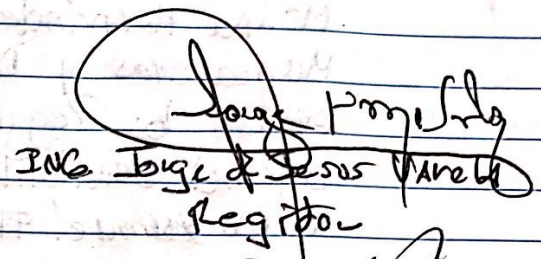 ING. Jorge de Jesus Varela
Regidor